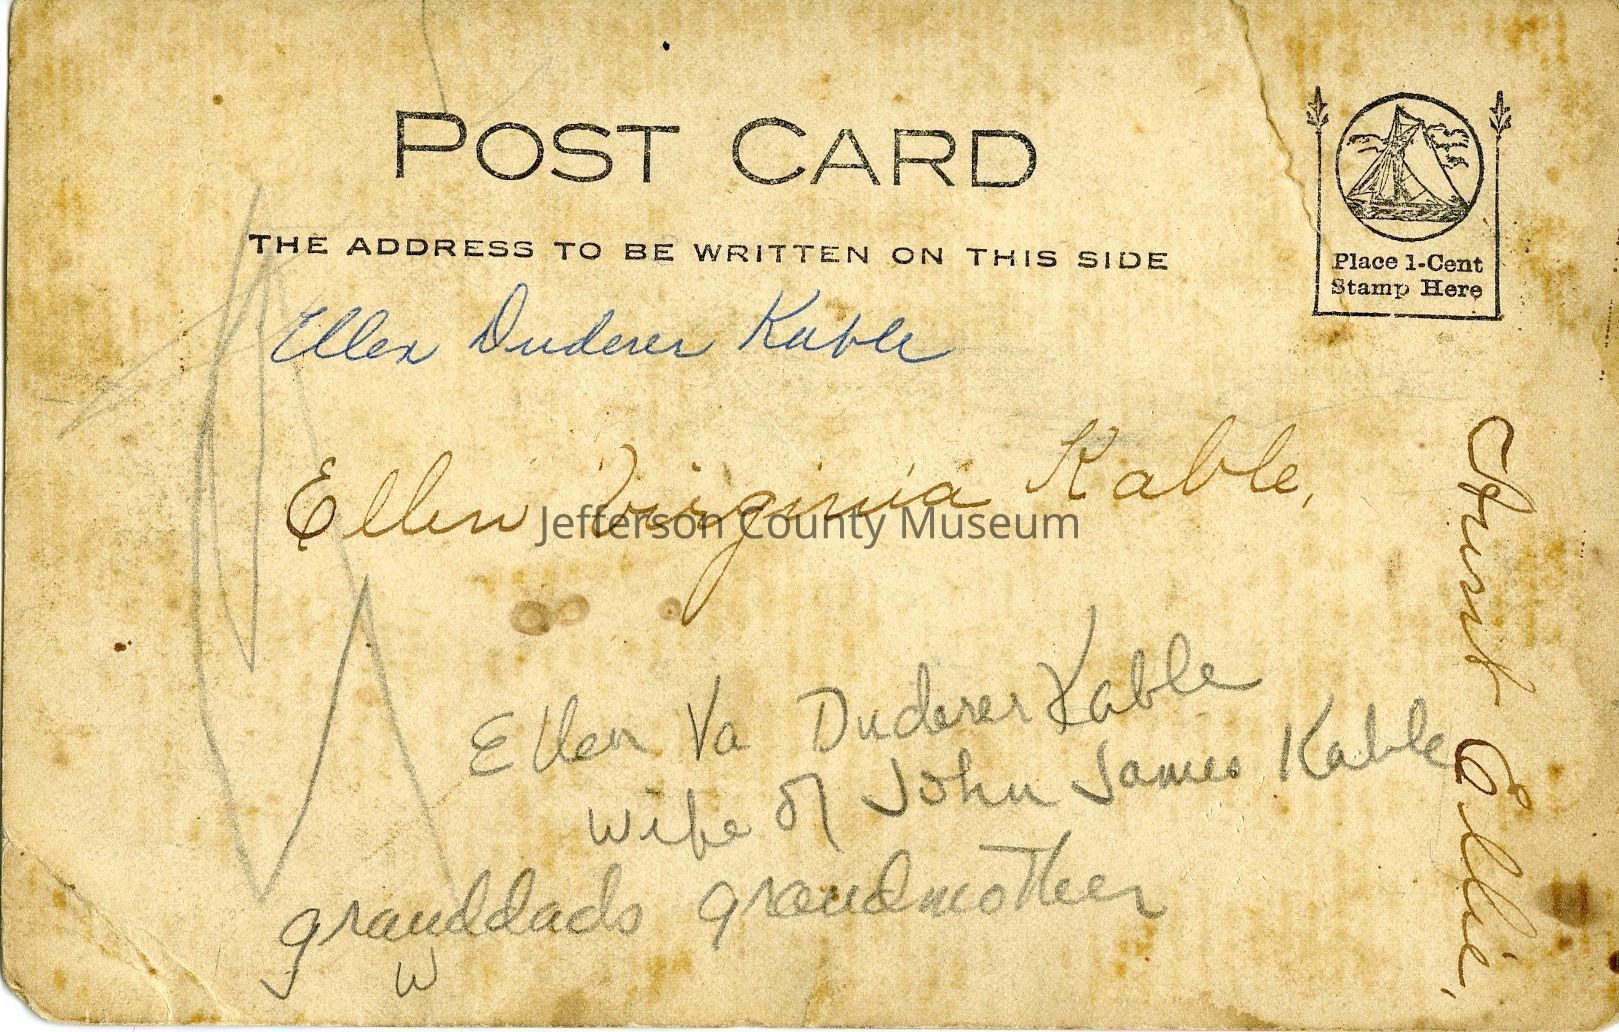 POST CARD
THE ADDRESS TO BE WRITTEN ON THIS SIDE
Place 1-Cent
Stamp Here
Ellen Duderer Kable
Ellen Virginia Kable,
Jefferson County Museum
Ellen Va Duderer Kable
wife of John James Kable
granddads grandmother
W
Aunt Ellie,